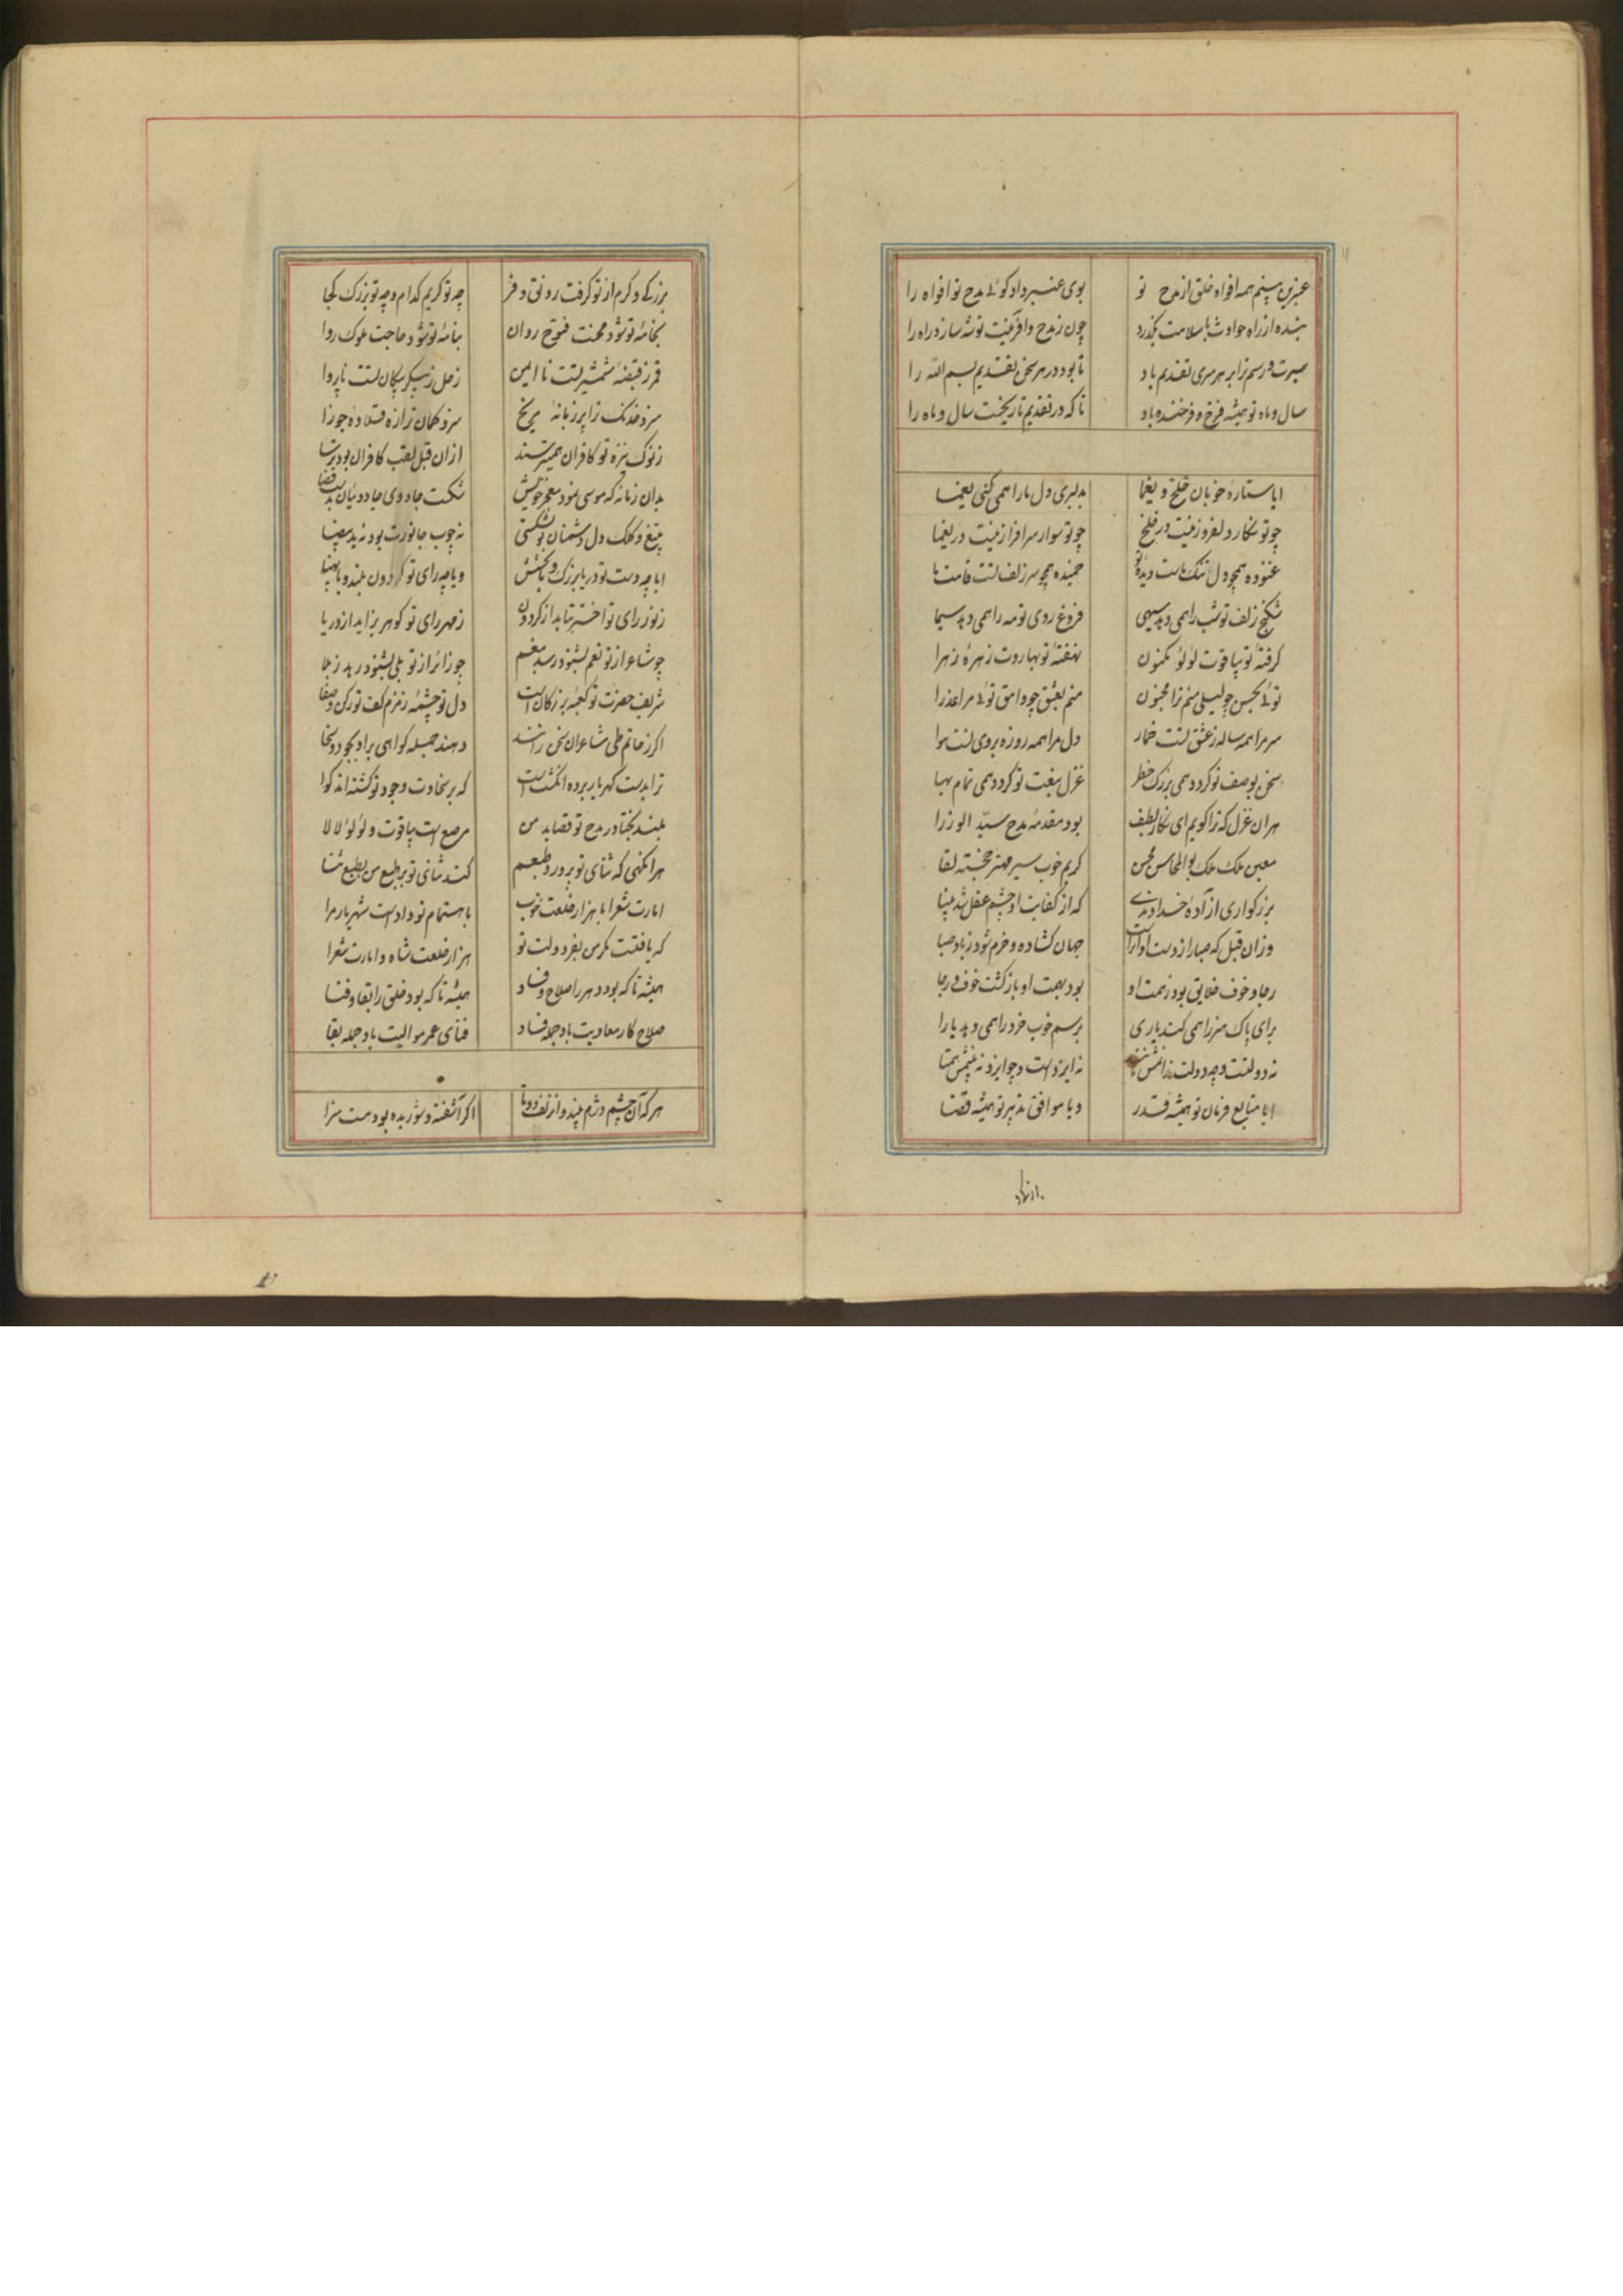 عنبرین بینم همه افواه خلق از مدح تو بوی عنبر داد گوئی مدح تو افواه را
بنده از راه حوادث با سلامت بگذرد چون ز مدح و آفرینت توشه سازد راه را
سیرت و رسم ترا بر هر سری تقدیم باد تا بود در هر سخن تقدیم بسم الله را
سال و ماه تو همیشه فرخ و فرخنده باد تا که در تقدیم تاریخست سال و ماه را
ایا ستاره خوبان خلخ و یغما بدلبری دل ما را همی کنی یغما
چو تو نگار دلفروز نیست در خلخ چو تو سوار سرافراز نیست در یغما
غنوده همچو دل تنک ماست دیده تو خمیده همچو سر زلف تست قامت ما
شکنج زلف تو شب را همی دهد سیهی فروغ روی تو مه را همی دهد سیما
گرفته تو بیاقوت لولو مکنون نهفته تو بهاروت زهره زهرا
توئی بحسن چو لیلی منم ترا مجنون منم بعشق چو وامق توئی مرا عذرا
سر مرا همه ساله ز عشق تست خمار دل مرا همه روزه بروی تست هوا
سخن بوصف تو گردد همی بزرک خطر غزل بنعت تو گردد همی تمام بها
هر ان غزل که ترا گویم ای نگار لطیف بود مقدمه مدح سید الوزرا
معین ملک ملک بوالمحاسن محسن کریم خوب سیر مهتر خجسته لقا
بزرکواری ازاده خداوندی که از کفایت او چشم عقل شد بینا
وزان قبل که صبا از دست او آراست جهان گشاده و خرم شود ز باد صبا
رجا و خوف خلایق بود ز همت او بود بهمت او بازگشت خوف و رجا
برای پاک هنر را همی کند یاری برسم خوب خرد را همی دهد یارا
نه دولتست و چه دولت نه ایزدست و چو ایزد نه بینمش همتا
ایا متابع فرمان تو همیشه قدر و یا موافق تدبیر تو همیشه قضا
بزرگی و کرم از تو گرفت رونق و فر چه تو کریم کدام و چه تو بزرک کجا
بخامه تو شود محنت فتوح روان بنامه تو شود حاجت ملوک روا
قمر ز قبضه شمشیر تست نا ایمن زحل ز پیکر پیکان تست ناپروا
سزد خدنک ترا پر زبانه مریخ سزد کمان ترا زه قلاده جوزا
ز نوک نیزه تو کافران همیترسند ازان قبل لقب کافران بود ترسا
بدان زمانه که موسی نمود معجز خویش شکست جادوی جادوئیان بدست قضا
بتیغ و کلک دل دشمنان تو بشکستی نه چوب جانورت بود نه ید بیضا
ایا چو دست تو دریا بزرک و با بخشش و یا چو رای تو گردون بلند و با پهنا
ز نور رای تو اختر بتابد از گردون ز مهر رای تو گوهر بزاید از دریا
چو شاعر از تو نعم بشنود رسد بنعم چو زائر از تو بلی بشنود رهد ز بلا
شریف حضرت تو کعبه بزرگان است دل تو چشمه زمزم کف تو رکن و صفا
اگر ز حاتم طی شاعران سخن رانند دهند جمله گواهی براو بجود و سخا
ترا بدست گهربار برده انگشت است که بر سخاوت وجود تو گشته‌اند گوا
بلند بختا در مدح تو قصاید من مرصع است بیاقوت و لؤلؤ لالا
هر انگهی که ثنای تو پرورد طبعم کند ثنای تو بر طبع من بطبع ثنا
امارت شعرا با هزار خلعت خوب باهتمام تو دادست شهریار مرا
که یافتست مگر من بفر دولت تو هزار خلعت شاه و امارت شعرا
همیشه تا که بود دهر را صلاح و فساد همیشه تا که بود خلق را بقا و فنا
صلاح کار معادیت باد جمله فساد فنای عمر موالیت باد جمله بقا
هر که آن چشم دژم بیند و آن زلف دوتا اگر آشفته و شوریده بود هست سزا